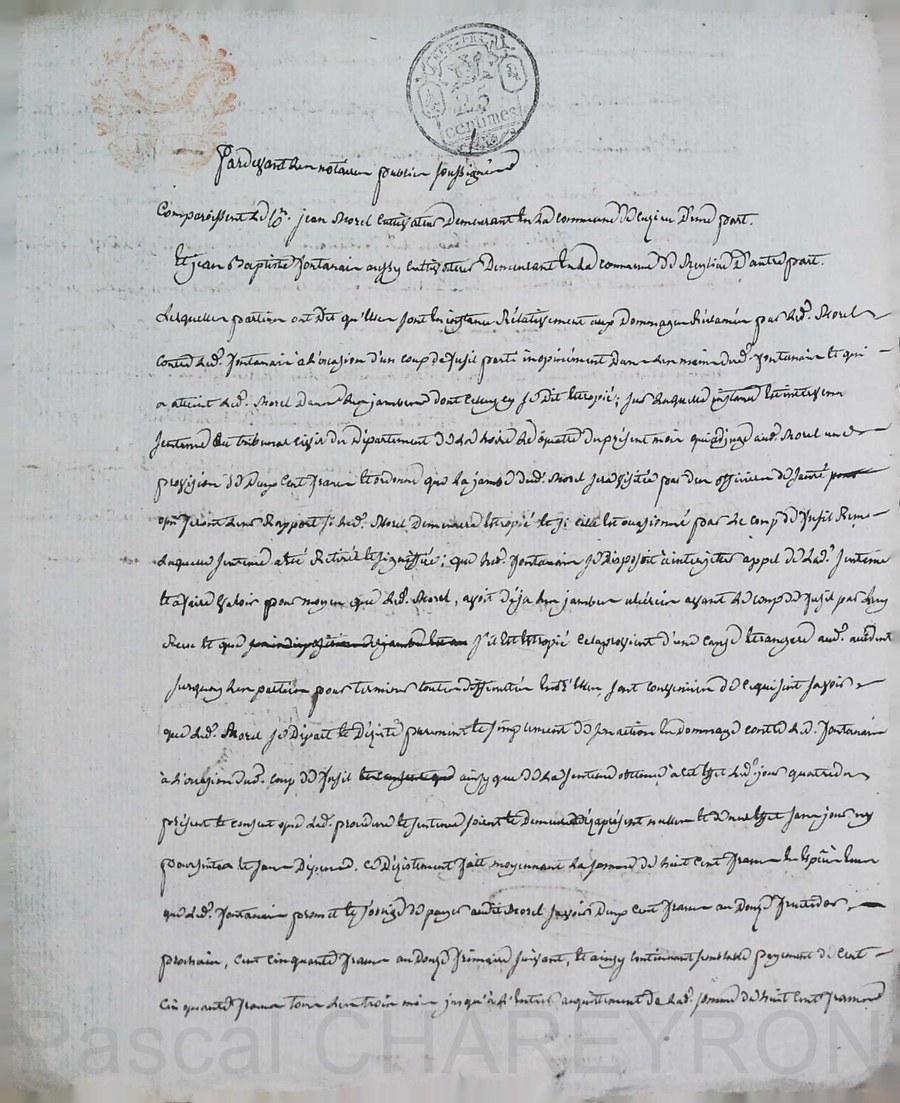 REP. FRA.
25
centimes
Pardevant les notaires publics soussignés
Comparoissent le Cn. jean Morel cultivateur demeurant en la commune d'une part.
Et jean Baptiste fontanain aussy cultivateur demeurant en la commune de d'autre part.
Lesquelles parties ont dit qu'elles sont en instance Rélativement aux dommages Réclamés par led. Morel
contre led. fontanain à l'occasion d'un coup de fusil parti inopinément dans les mains dud. fontanain et qui
a atteint led. Morel dans les jambes dont celuycy se dit estropié; sur laquelle instance est intervenu
sentence du tribunal civil du département de la loire le quatre du présent mois qui adjuge aud. Morel une
provision de deux cent francs et ordonne que la jambe dud. Morel sera visitée par des officiers de santé pour
qui feront leur Rapport si led. Morel demeurera estropié et si cela est occasionné par le coup de fusil
Laquelle sentence a été Retirée et signiffiée; que led. fontanain se disposoit à interjetter appel de lad. sentence
et a faire valoir pour moyen que led. Morel, avoit déja les jambes avant le coup de fusil par luy
Recu et que s'il est estropié cela provient d'une cause étrangere aud. accident
surquoy les parties pour terminer toutes difficultés entr'elles sont convenues de ce qui suit savoir
que led. Morel se départ et désiste purement et simplement de son action en dommage contre led. fontanain
à l'occasion dud. coup de fusil ainsy que de la sentence obtenue a cet effet led. jour quatre du
présent et consent que lad. procedure et sentence soient et demeurent dèsaprésent nulles et de nul effet sans
poursuites et sans dépens. Ce désistement fait moyennant la somme de huit cent francs en espèces
que led. fontanain promet et s'oblige de payer audit Morel savoir deux cent francs au douze fructidor
prochain, cent cinquante francs au douze frimaire suivant, et ainsy continuant semblable payement de cent
cinquante francs tous les trois mois jusqu'à l'entier acquittement de lad. somme de huit cent francs
Pascal CHAREYRON